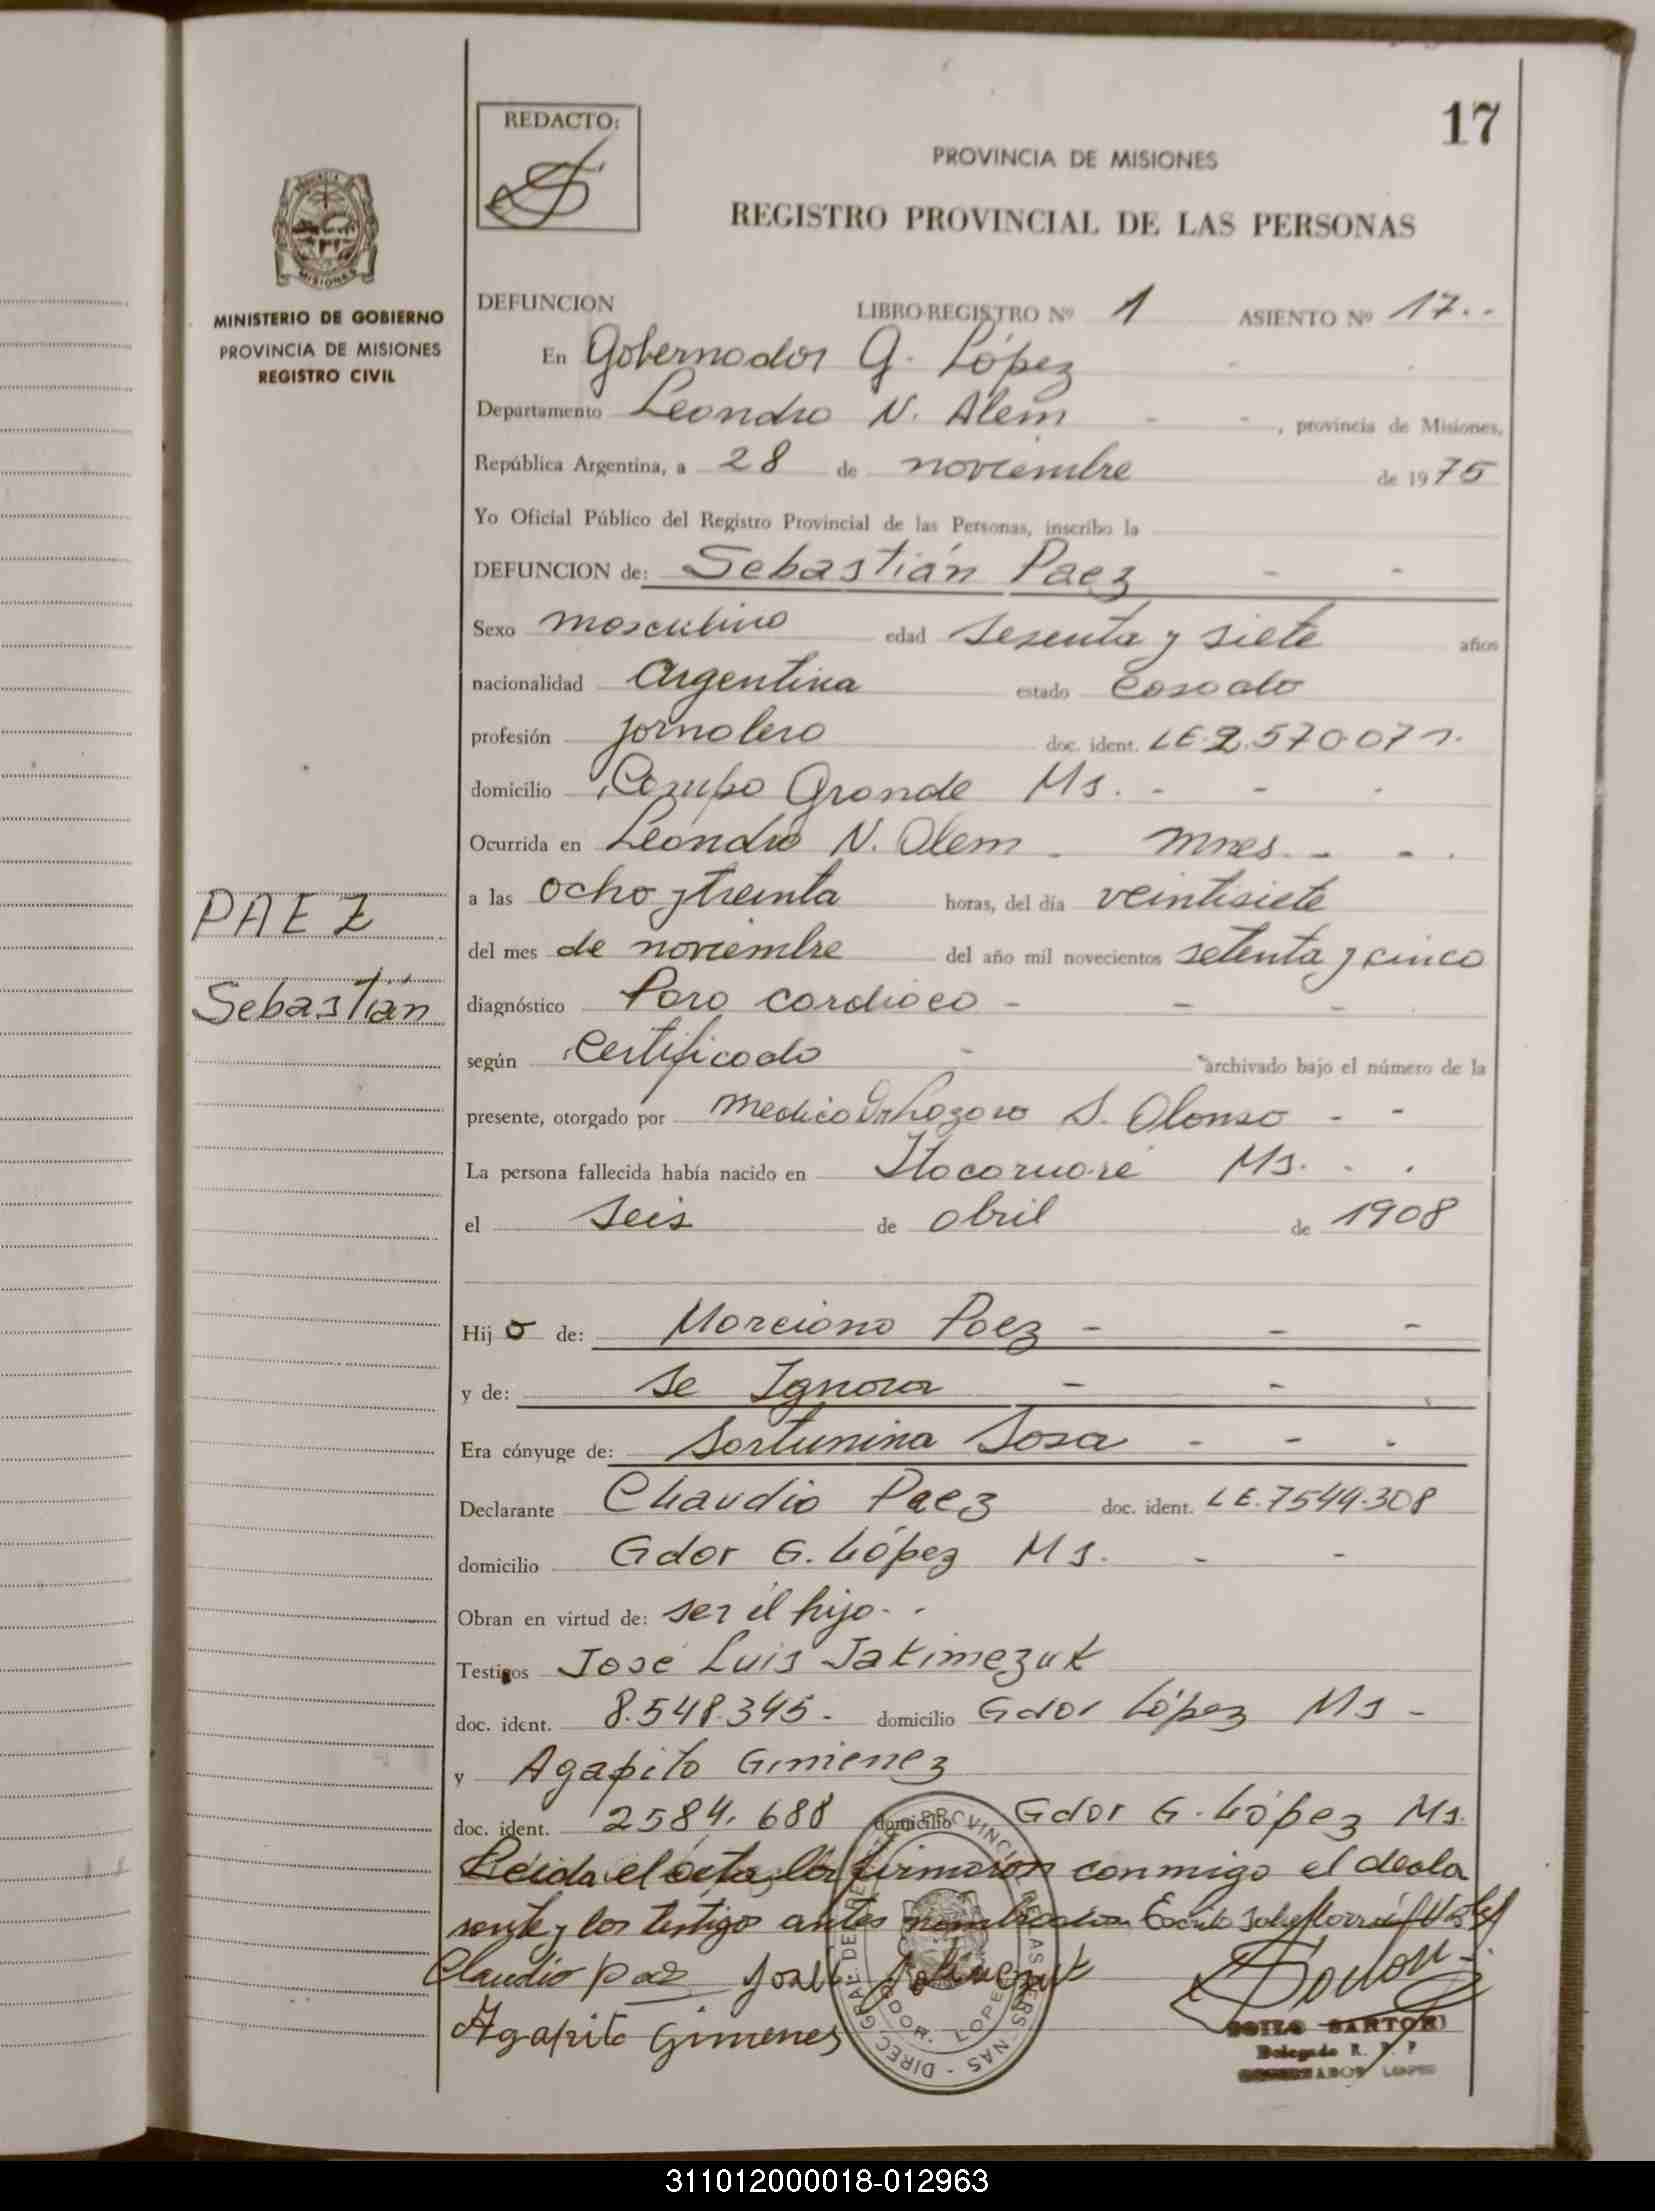 17
REDACTO:
PROVINCIA DE MISIONES
REGISTRO PROVINCIAL DE LAS PERSONAS
MISIONES
MINISTERIO DE GOBIERNO
PROVINCIA DE MISIONES
REGISTRO CIVIL
DEFUNCION LIBRO-REGISTRO Nº 1 ASIENTO Nº 17..
En Gobernador G. López
Departamento Leandro N. Alem - - , provincia de Misiones,
República Argentina, a 28 de noviembre de 1975
Yo Oficial Público del Registro Provincial de las Personas, inscribo la
DEFUNCION de: Sebastián Paez - -
Sexo masculino edad sesenta y siete años
nacionalidad Argentina estado Casado
profesión jornalero doc. ident. LE.2.570.071.
domicilio Campo Grande Ms. - - -
Ocurrida en Leandro N. Alem - Mnes. - - .
a las ocho y treinta horas, del día veintisiete
del mes de noviembre del año mil novecientos setenta y cinco
PAEZ
Sebastián
diagnóstico Paro cardiaco - - -
según Certificado - archivado bajo el número de la
presente, otorgado por medico S. Alonso - -
La persona fallecida había nacido en Itacaruaré Ms. - .
el seis de abril de 1908
Hijo de: Marciano Paez - - -
y de: se Ignora - -
Era cónyuge de: Sortunina Sosa - - -
Declarante Claudio Paez doc. ident. LE.7544.308
domicilio Gdor G. López Ms. - -
Obran en virtud de: ser el hijo. .
Testigos José Luis Jakimezuk
doc. ident. 8.548.345. domicilio Gdor López Ms -
y Agapito Gimenez
doc. ident. 2584.688 domicilio Gdor G. López Ms.
Leida el acta, la firmaron conmigo el decla
rante y los testigos antes nombrados. Escrito
Claudio paez José
Agapito Gimenes
GDOR. LOPEZ
SARTORI
Delegado R. P. P
GOBERNADOR LOPEZ
311012000018-012963